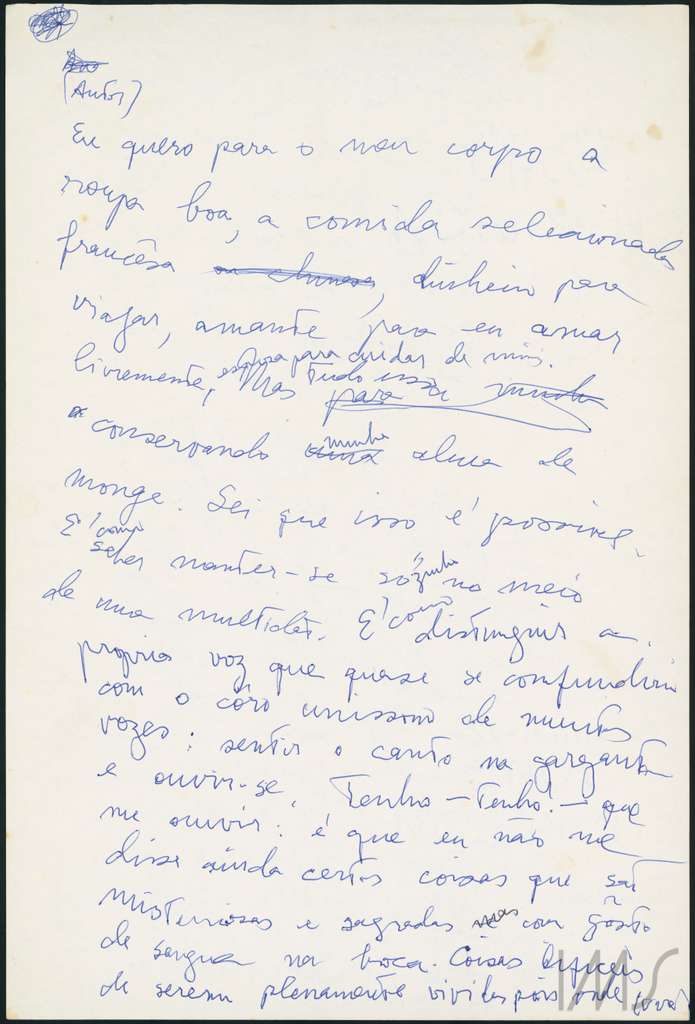 (Autor)
Eu quero para o meu corpo a
roupa boa, a comida selecionada
francêsa ou chinesa, dinheiro para
viajar, amante para eu amar
livremente, esposa para cuidar de mim.
Mas tudo isso para minha
conservando uma minha alma de
monge. Sei que isso é possível.
É como
saber manter-se sòzinho no meio
de uma multidão. É como distinguir a
própria voz que quase se confundiria
com o côro uníssono de muitas
vozes: sentir o canto na garganta
e ouvir-se. Tenho – Tenho! – que
me ouvir: é que eu não me
disse ainda certas coisas que são
misteriosas e sagradas mas com gôsto
de sangue na boca. Coisas difíceis
de serem plenamente vividas pois onde
IMS